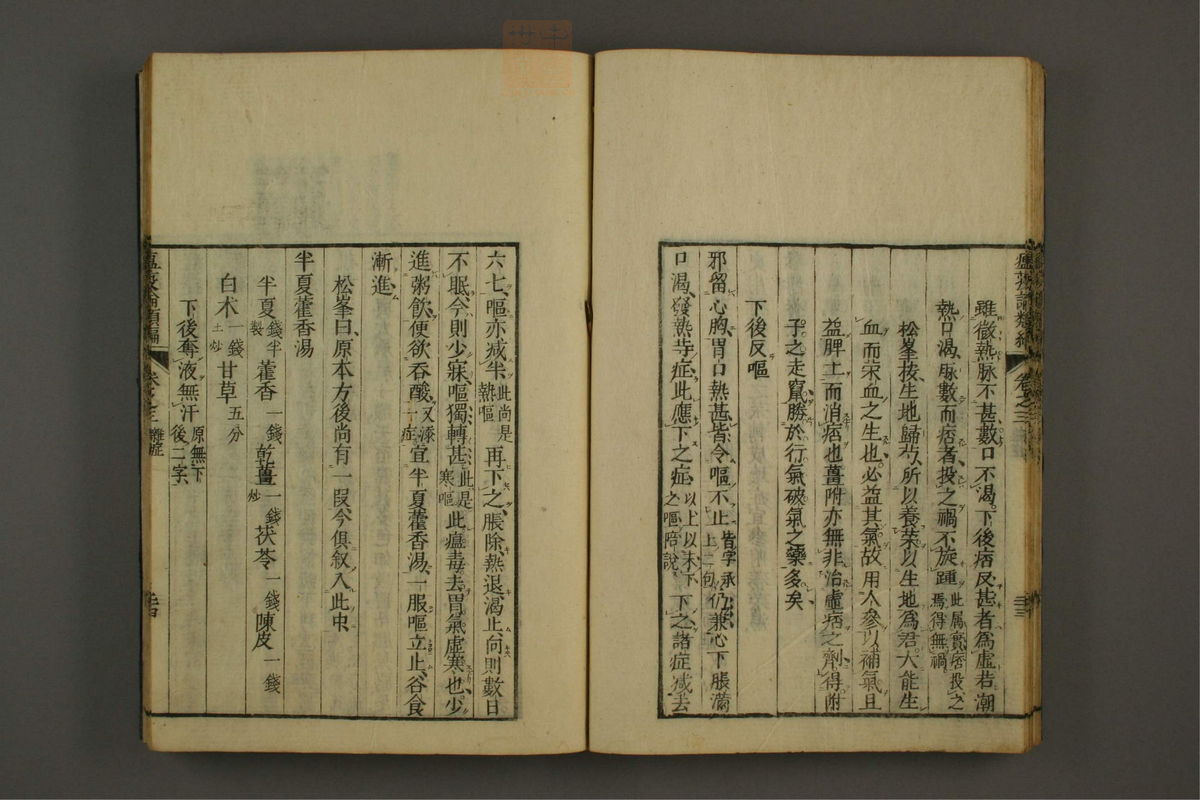 雖徹熱脉不甚數口不渴下後痞反甚者爲虚若潮
熱口渴脉數而痞者投之禍不旋踵此属實痞投之焉得無禍
松峯按生地歸芍所以養榮以生地爲君大能生
血而榮血之生也必益其氣故用人參以補氣且
益脾土而消痞也薑附亦無非治虚痞之劑得附
子之走竄勝於行氣破氣之藥多矣
下後反嘔
邪留心胸胃口熱甚皆令嘔不止皆字承上二句仍兼心下脹滿
口渴發熱等症此應下之症以上以未下之嘔陪說下之諸症减去
六七嘔亦减半此尚是熱嘔再下之脹除熱退渴止向則數日
不眠今則少寐嘔獨轉甚此是寒嘔此瘟毒去胃氣虚寒也少
進粥飲便欲吞酸又添一症宜半夏藿香湯一服嘔立止谷食
漸進
松峯曰原本方後尚有一叚今俱叙入此中
半夏藿香湯
半夏錢半製藿香一錢乾薑一錢炒茯苓一錢陳皮一錢
白术一錢土炒甘草五分
下後奪液無汗原無下後二字
卷之三 雜症